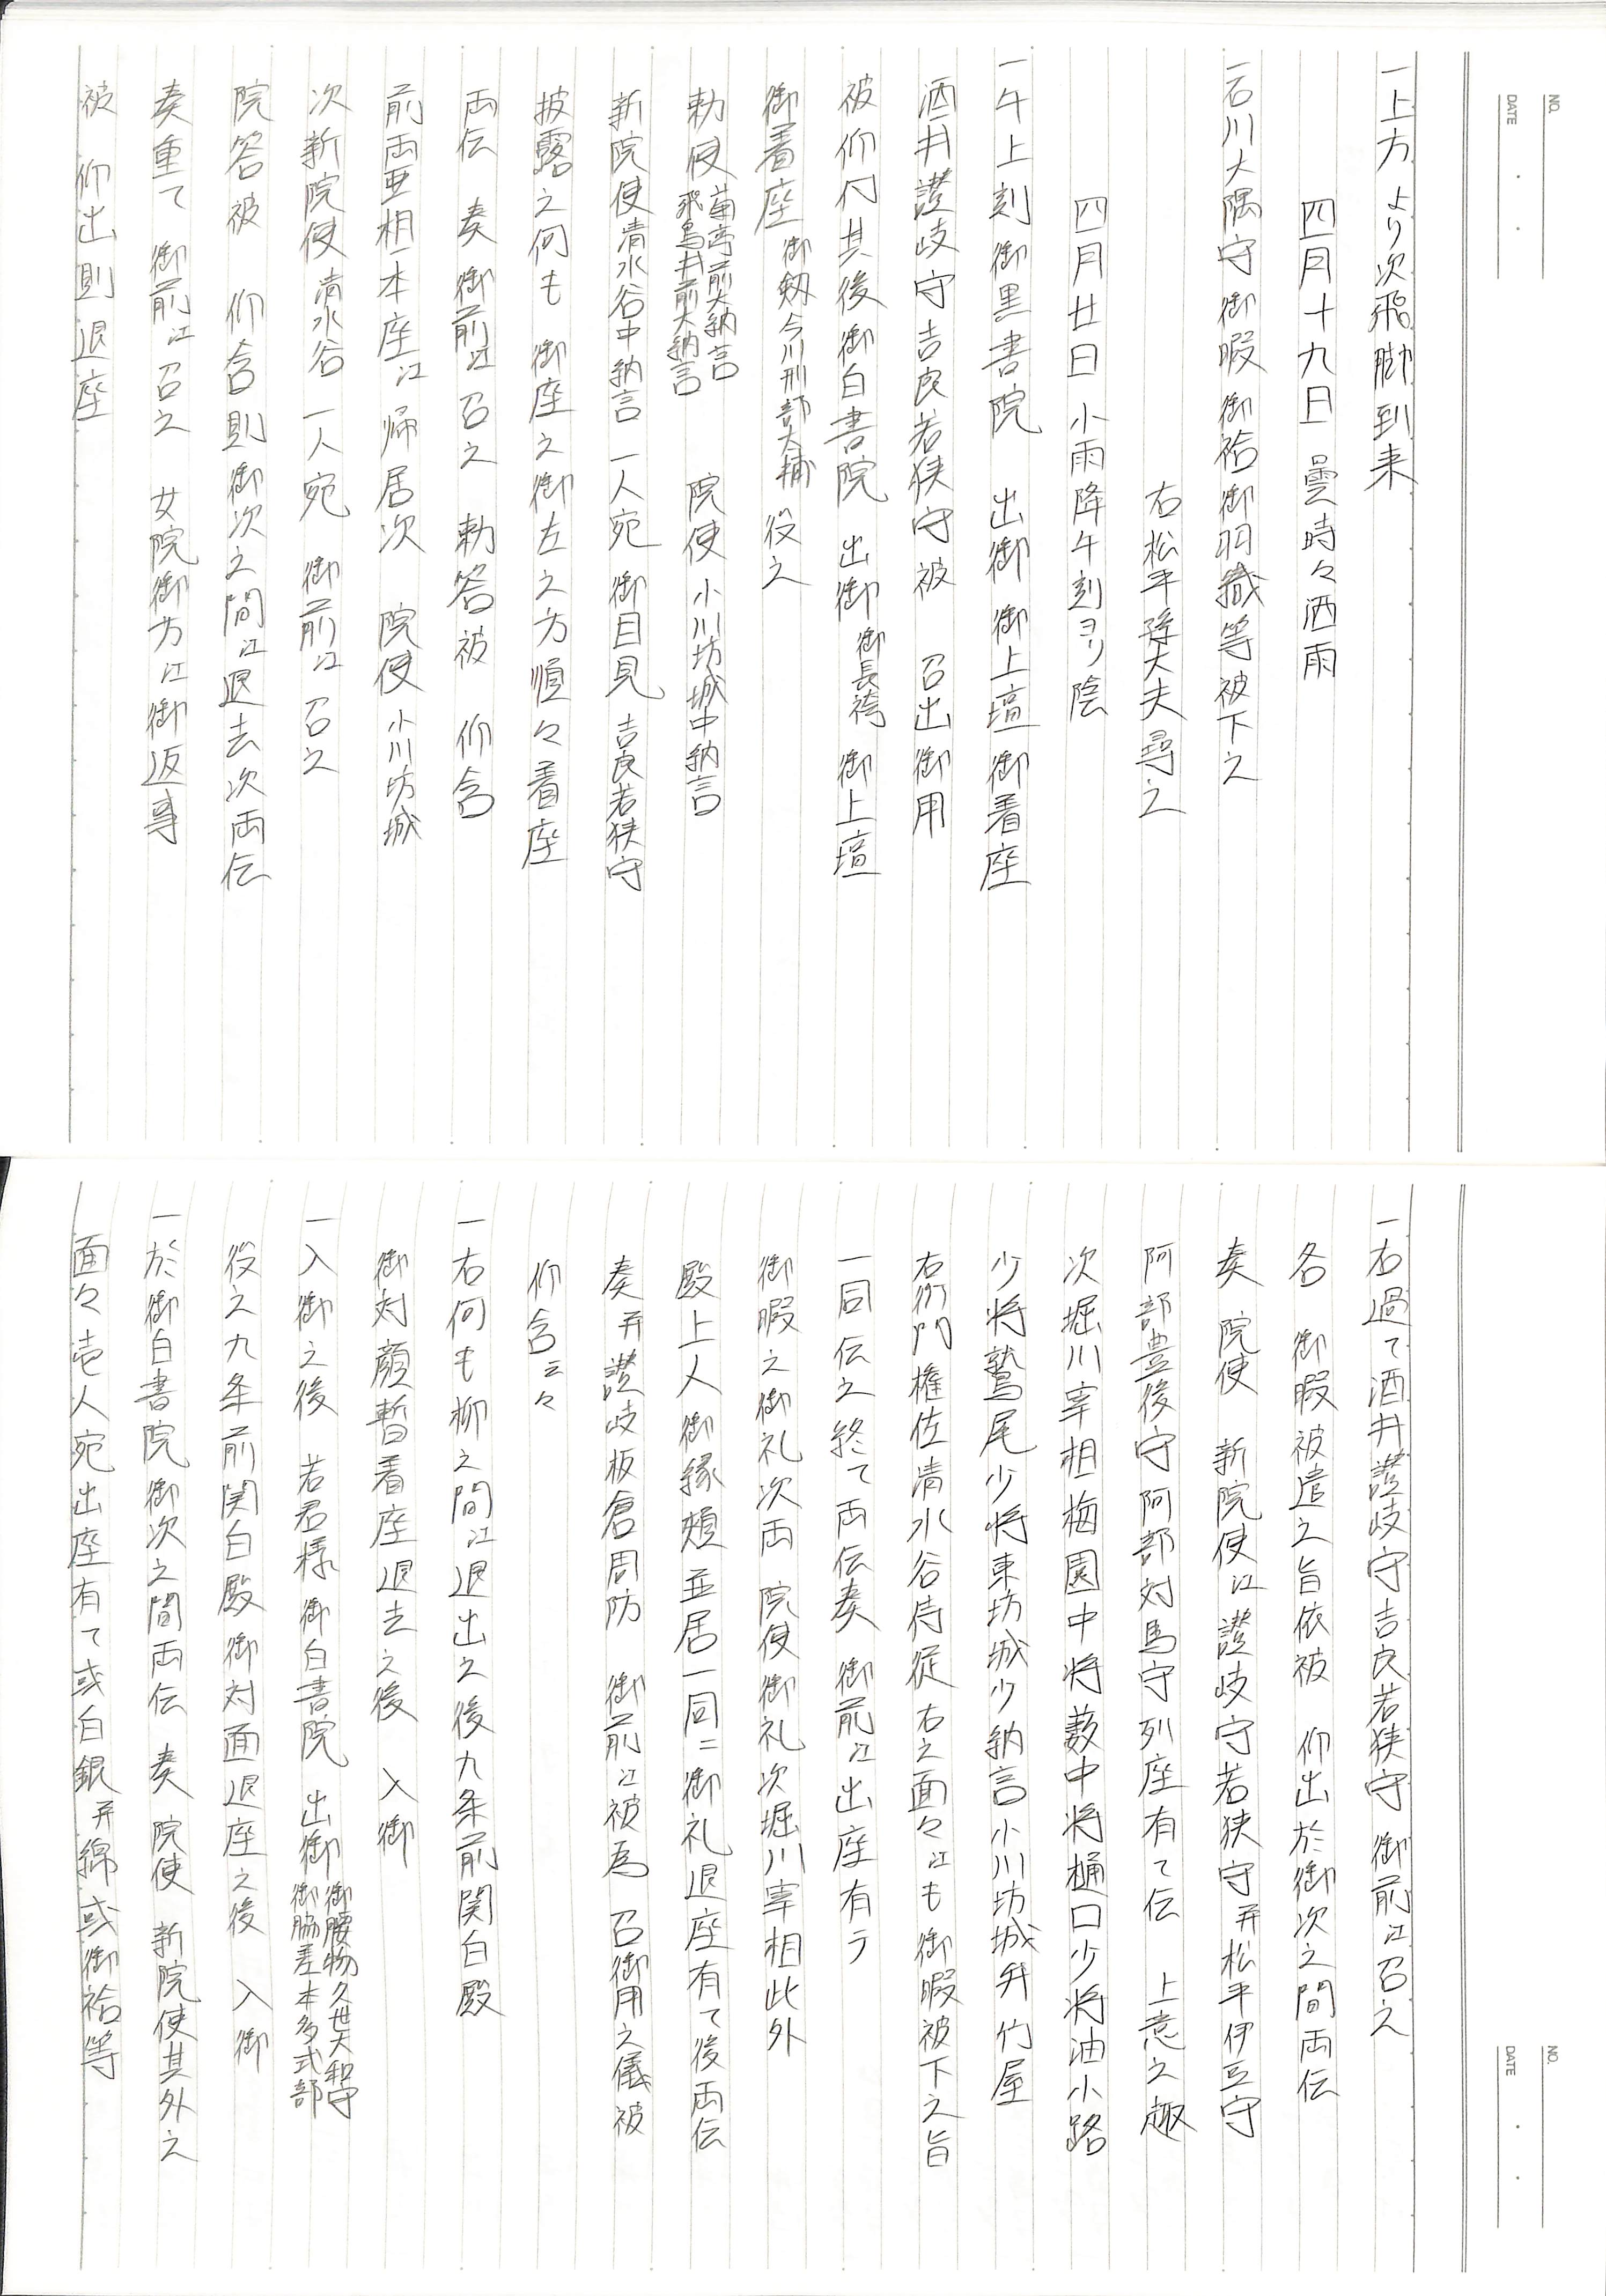 NO.
DATE
一上方より次飛脚到来
四月十九日 曇時々洒雨
一石川大隅守御暇御袷御羽織等被下之
右松平隼大夫尋之
四月廿日 小雨降午刻ヨリ陰
一午上刻御黒書院 出御 御上壇御着座
酒井讃岐守吉良若狭守被 召出御用
被仰付其後御白書院 出御 御長袴 御上壇
御着座 御剱今川刑部大輔 役之
勅使 菊亭前大納言 飛鳥井前大納言 院使 小川坊城中納言
新院使清水谷中納言 一人宛 御目見 吉良若狭守
披露之何も 御座之御左之方順々着座
両伝 奏 御前江召之 勅答被 仰含
前両亜相本座江帰居次 院使 小川坊城
次新院使 清水谷 一人宛 御前江召之
院答被 仰含則御次之間江退去次両伝
奏重て 御前江召之 女院御方江御返事
被 仰出則退座
NO.
DATE
一右過て酒井讃岐守吉良若狭守 御前江召之
各 御暇被遣之旨依被 仰出於御次之間両伝
奏 院使 新院使江讃岐守若狭守并松平伊豆守
阿部豊後守阿部対馬守列座有て伝 上意之趣
次堀川宰相梅園中将薮中将樋口少将油小路
少将鷲尾少将東坊城少納言小川坊城弁竹屋
右衛門権佐清水谷侍従 右之面々江も御暇被下之旨
一同伝之終て両伝奏 御前江出座有テ
御暇之御礼次両 院使御礼次堀川宰相此外
殿上人御縁頬並居一同ニ御礼退座有て後両伝
奏并讃岐板倉周防 御前江被為 召御用之儀被
仰含云々
一右何も柳之間江退出之後九条前関白殿
御対顔暫着座退去之後 入御
一入御之後 若君様御白書院 出御 御腰物久世大和守 御脇差本多式部
役之九条前関白殿御対面退座之後 入御
一於御白書院御次之間両伝 奏 院使 新院使其外之
面々壱人宛出座有て或白銀并綿或御袷等